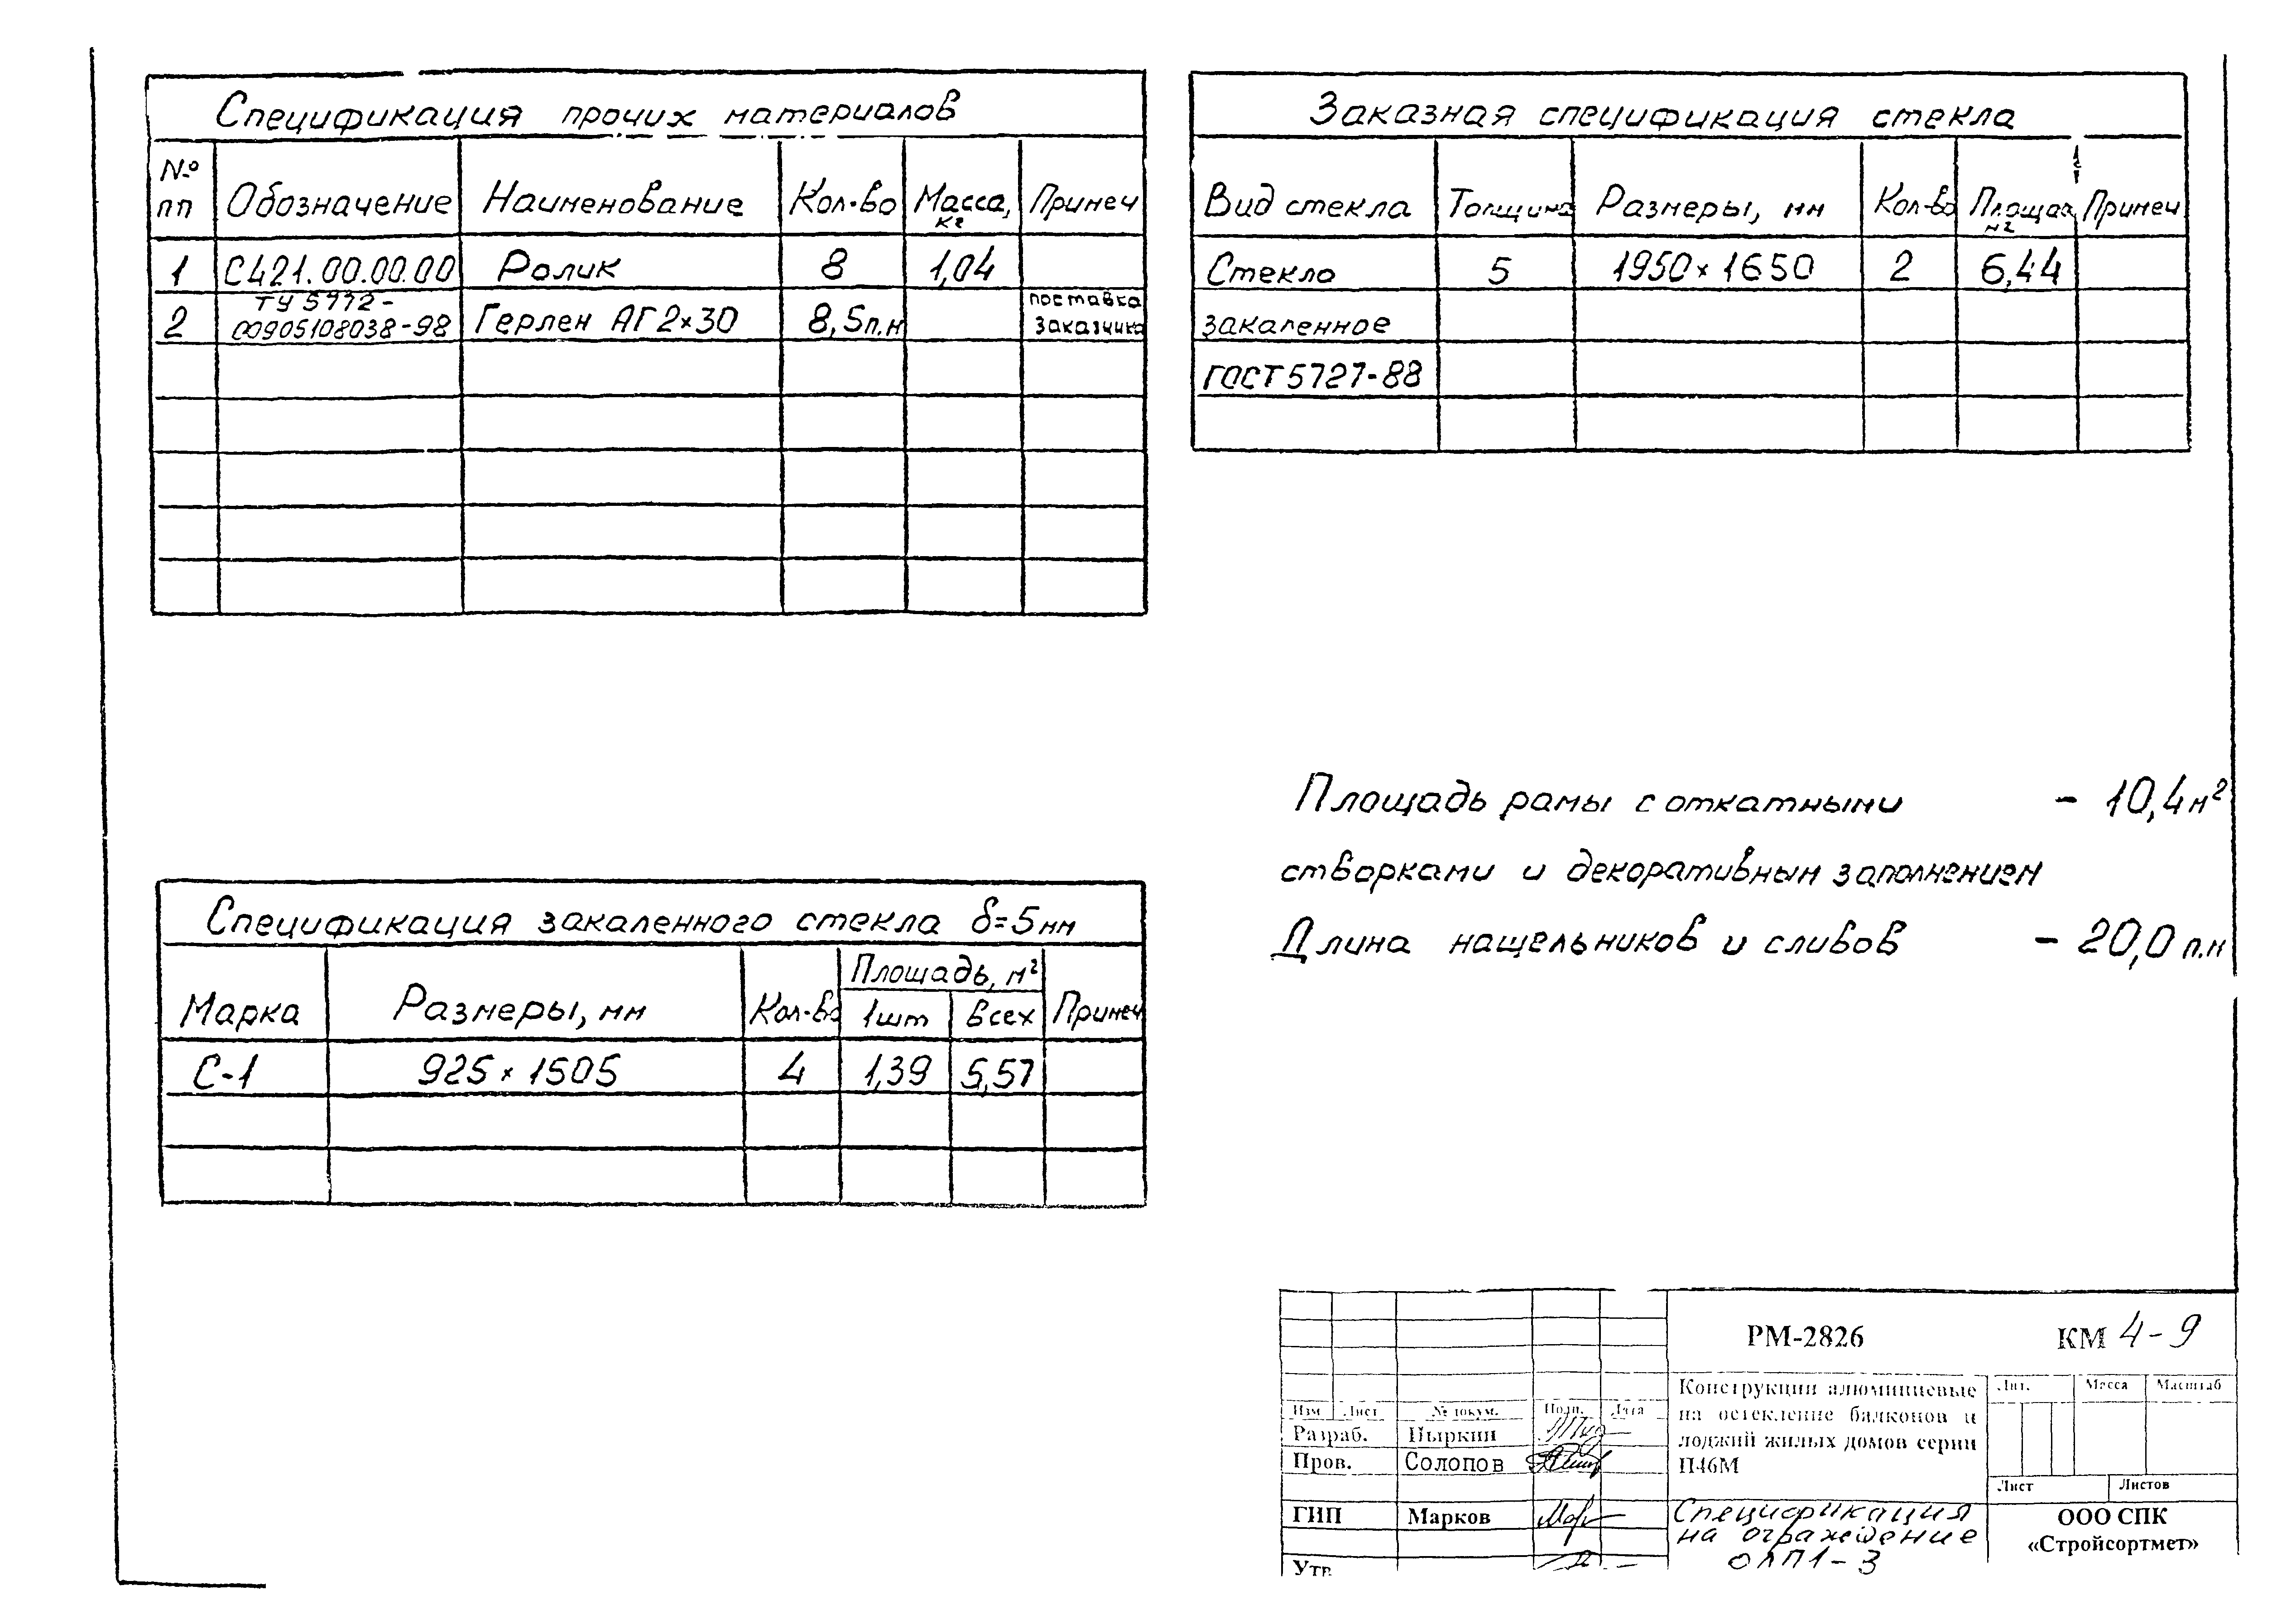 Спецификация прочих материалов
№ пп Обозначение Наименование Кол-во Масса, кг Примеч
1 С421.00.00.00 Ролик 8 1,04
2 ТУ 5772-00905108038-98 Герлен АГ 2×30 8,5 п.м поставка заказчика
Заказная спецификация стекла
Вид стекла Толщина Размеры, мм Кол-во Площад м2 Примеч
Стекло 5 1950×1650 2 6,44
закаленное
ГОСТ 5727-88
Площадь рамы с откатными - 10,4 м²
створками и декоративным заполнением
Длина нащельников и сливов - 20,0 п.м
Спецификация закаленного стекла δ=5мм
Марка Размеры, мм Кол-во Площадь, м² Примеч
1шт Всех
С-1 925×1505 4 1,39 5,57
РМ-2826 КМ 4-9
Конструкции алюминиевые
на остекление балконов и
лоджий жилых домов серии
П46М
Лит. Масса Масштаб
Изм Лист № докум. Подп. Дата
Разраб. Пыркин
Пров. Солопов
Лист Листов
ГИП Марков
Спецификация
на ограждение
ОЛП1-3
ООО СПК
«Стройсортмет»
Утв